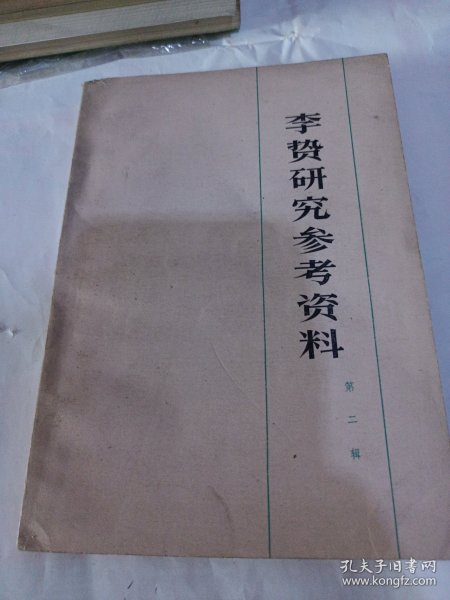 李贽研究参考资料
第二辑
孔夫子旧书网
www.kongfz.com